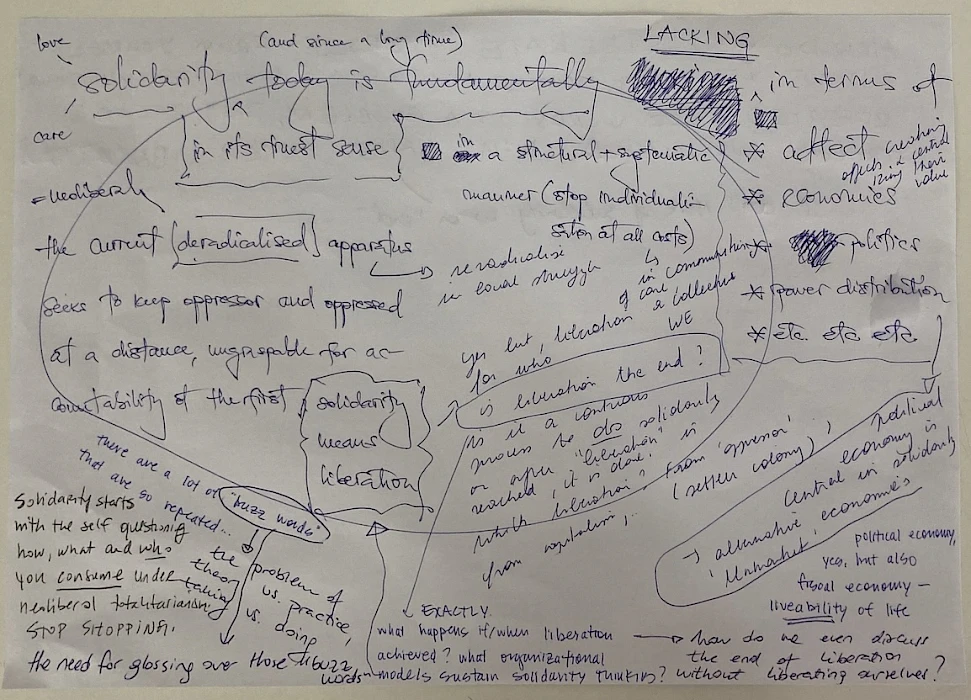 love
(and since a long time)
LACKING
solidarity today is fundamentally
in terms of
care
in its truest sense
in a structural + systematic
manner (stop individuali-
sation at all costs)
in communities
of care
a collective
WE
* affect
creating
affects &
their
value
* economics
* politics
* power distribution
* etc. etc etc
= neoliberal
the current [deradicalised] apparatus
reradicalise
in equal struggle
seeks to keep oppressor and oppressed
at a distance, ungraspable for ac-
countability of the first
solidarity
means
liberation
yes but, liberation
for who
is liberation the end?
is it a continous
process to do solidarity
or after "liberation" is
reached, it is done.
which liberation,
from 'oppressor'
(settler colony),
from capitalism,..
political
economy is
central in solidarity
→ alternative economies
'Unmarket'
political economy,
yes, but also
fiscal economy –
liveability of life
there are a lot of
"buzz words"
that are so repeated...
the problem of
theory vs. practice,
talking vs. doing
Solidarity starts
with the self questioning
how, what and who
you consume under
neoliberal totalitarianism.
STOP SHOPPING.
the need for glossing over those "buzz
words"
EXACTLY.
what happens if/when liberation
achieved? what organizational
models sustain solidarity thinking?
how do we even discuss
the end of liberation
without liberating ourselves?